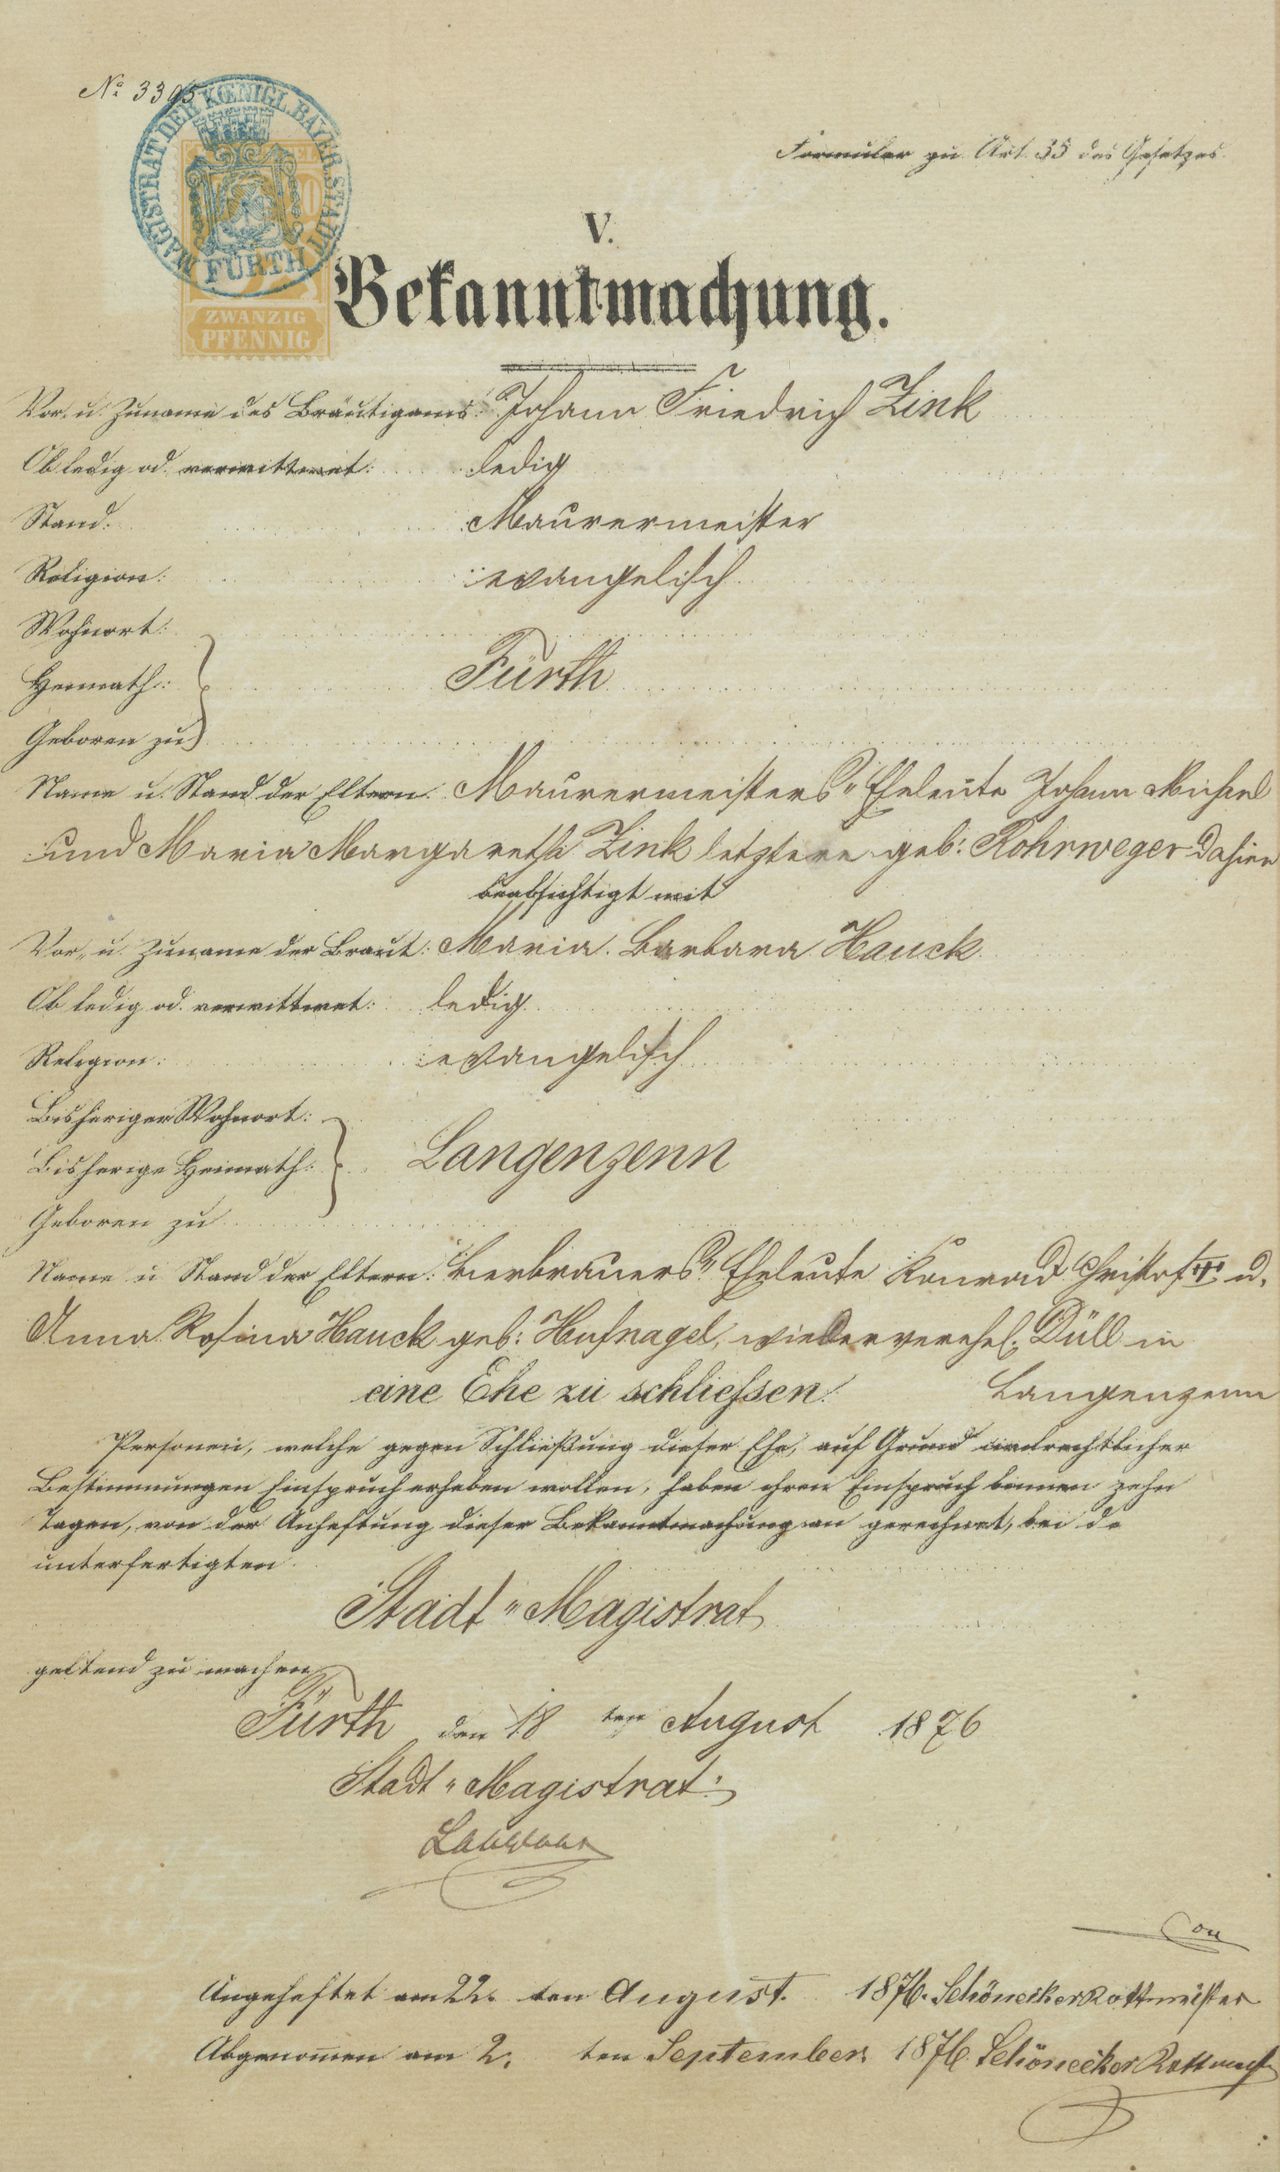 No. 3395
MAGISTRAT DER KŒNIGL. BAYER. STADT
FÜRTH
ZWANZIG
PFENNIG
Formular zu Art. 35 des Gesetzes.
V.
Bekanntmachung.
Vor- u. Zuname des Bräutigams: Johann Friedrich Zink
Ob ledig od. verwittwet: ledig
Stand: Maurermeister
Religion: evangelisch
Wohnort:
Heimath: Fürth
Geboren zu
Name u. Stand der Eltern: Maurermeisters" Eheleute Johann Michael
und Maria Margaretha Zink letztere geb: Rohrweger dahier
beabsichtigt mit
Vor- u. Zuname der Braut: Maria Barbara Hauck
Ob ledig od. verwittwet: ledig
Religion: evangelisch
Bisheriger Wohnort:
Bisherige Heimath: Langenzenn
Geboren zu
Name u. Stand der Eltern: Bierbrauers" Eheleute Konrad Christof † u.
Anna Rosina Hauck geb: Hufnagel, wiederverehel. Düll in
eine Ehe zu schliessen. Langenzenn
Personen, welche gegen Schließung dieser Ehe, auf Grund civilrechtlicher
Bestimmungen Einspruch erheben wollen, haben ihren Einspruch binnen zehn
Tagen, von der Anheftung dieser Bekanntmachung an gerechnet, bei de
unterfertigten
Stadt"Magistrat
geltend zu machen
Fürth den 18 ten August 1876
Stadt"Magistrat:
Angeheftet am 22. ten August. 1876. Schönecker Rottmeister
Abgenommen am 2. ten September 1876 Schönecker Rottmeist